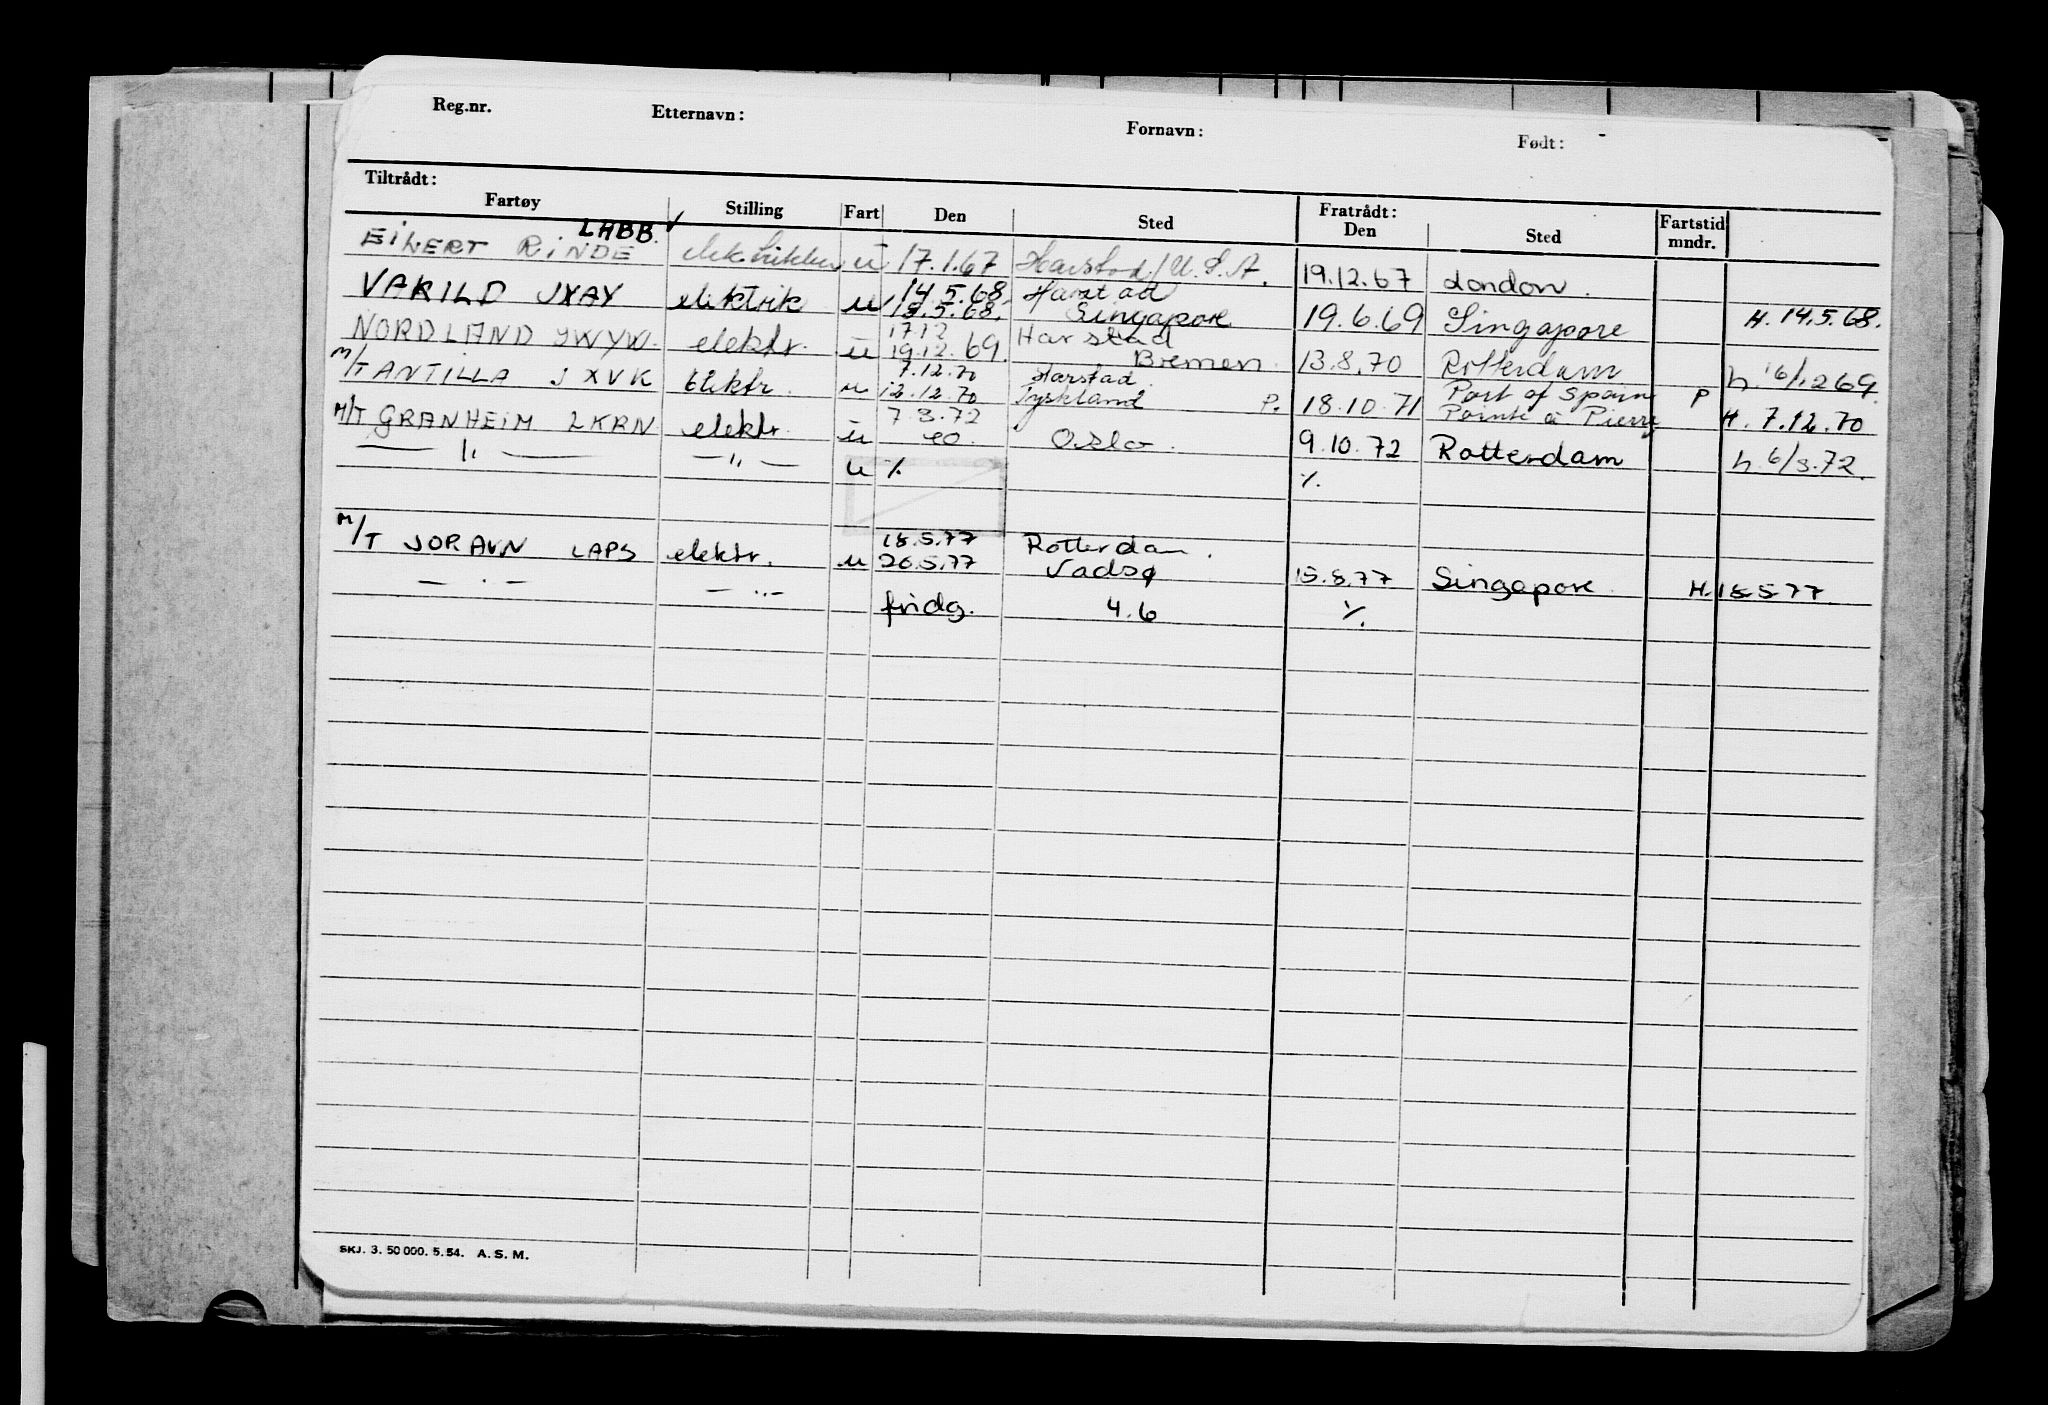 Reg.nr. Etternavn: Fornavn: Født:
Tiltrådt: Fratrådt: Fartstid
Fartøy Stilling Fart Den Sted Den Sted mndr.
LHBB. ✓
EILERT RINDE elektriker u 17.1.67 Harstad/U.S.A. 19.12.67 London.
14.5.68 Harstad
VARILD JXAY elektrik u 18.5.68. Singapore 19.6.69 Singapore H. 14.5.68.
17.12 Harstad
NORDLAND JWYW. elektr. u 19.12.69. Bremen. 13.8.70 Rotterdam h. 16/12 69
7.12.70 Harstad. Port of Spain P
M/T ANTILLA JXVK elektr. u 12.12.70 Tyskland P. 18.10.71 Pointe à Pierre H. 7.12.70
7.3.72
M/T GRANHEIM LKRN elektr. u eo. Oslo. 9.10.72 Rotterdam h. 6/3.72.
— " — — " — u % %
18.5.77 Rotterdam.
M/T JORAVN LAPS elektr. u 20.5.77 Vadsø 15.8.77 Singapore. H. 18.5.77.
— " — — " — fridg. 4.6 %
SKJ. 3. 50 000. 5. 54. A. S. M.